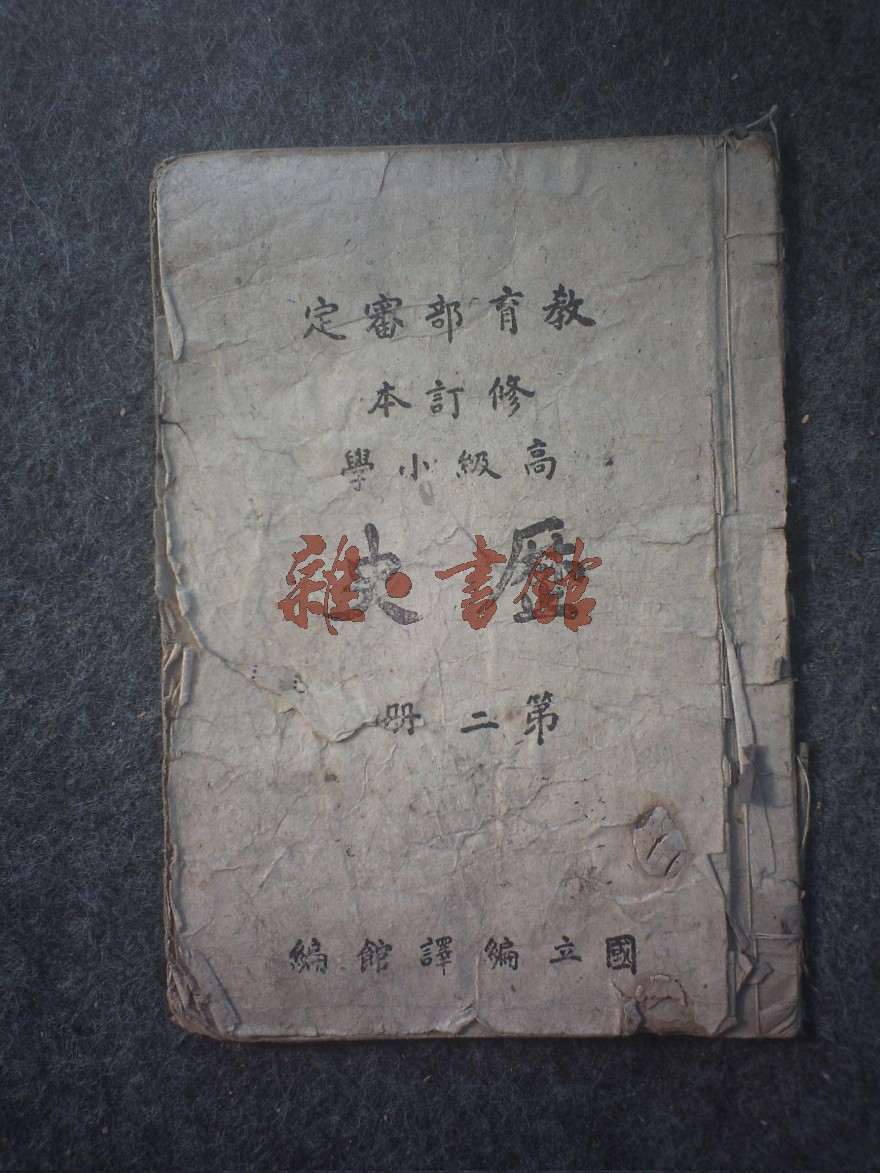 教育部審定
修訂本
高級小學
歷史
雜·書館
第二冊
國立編譯館編